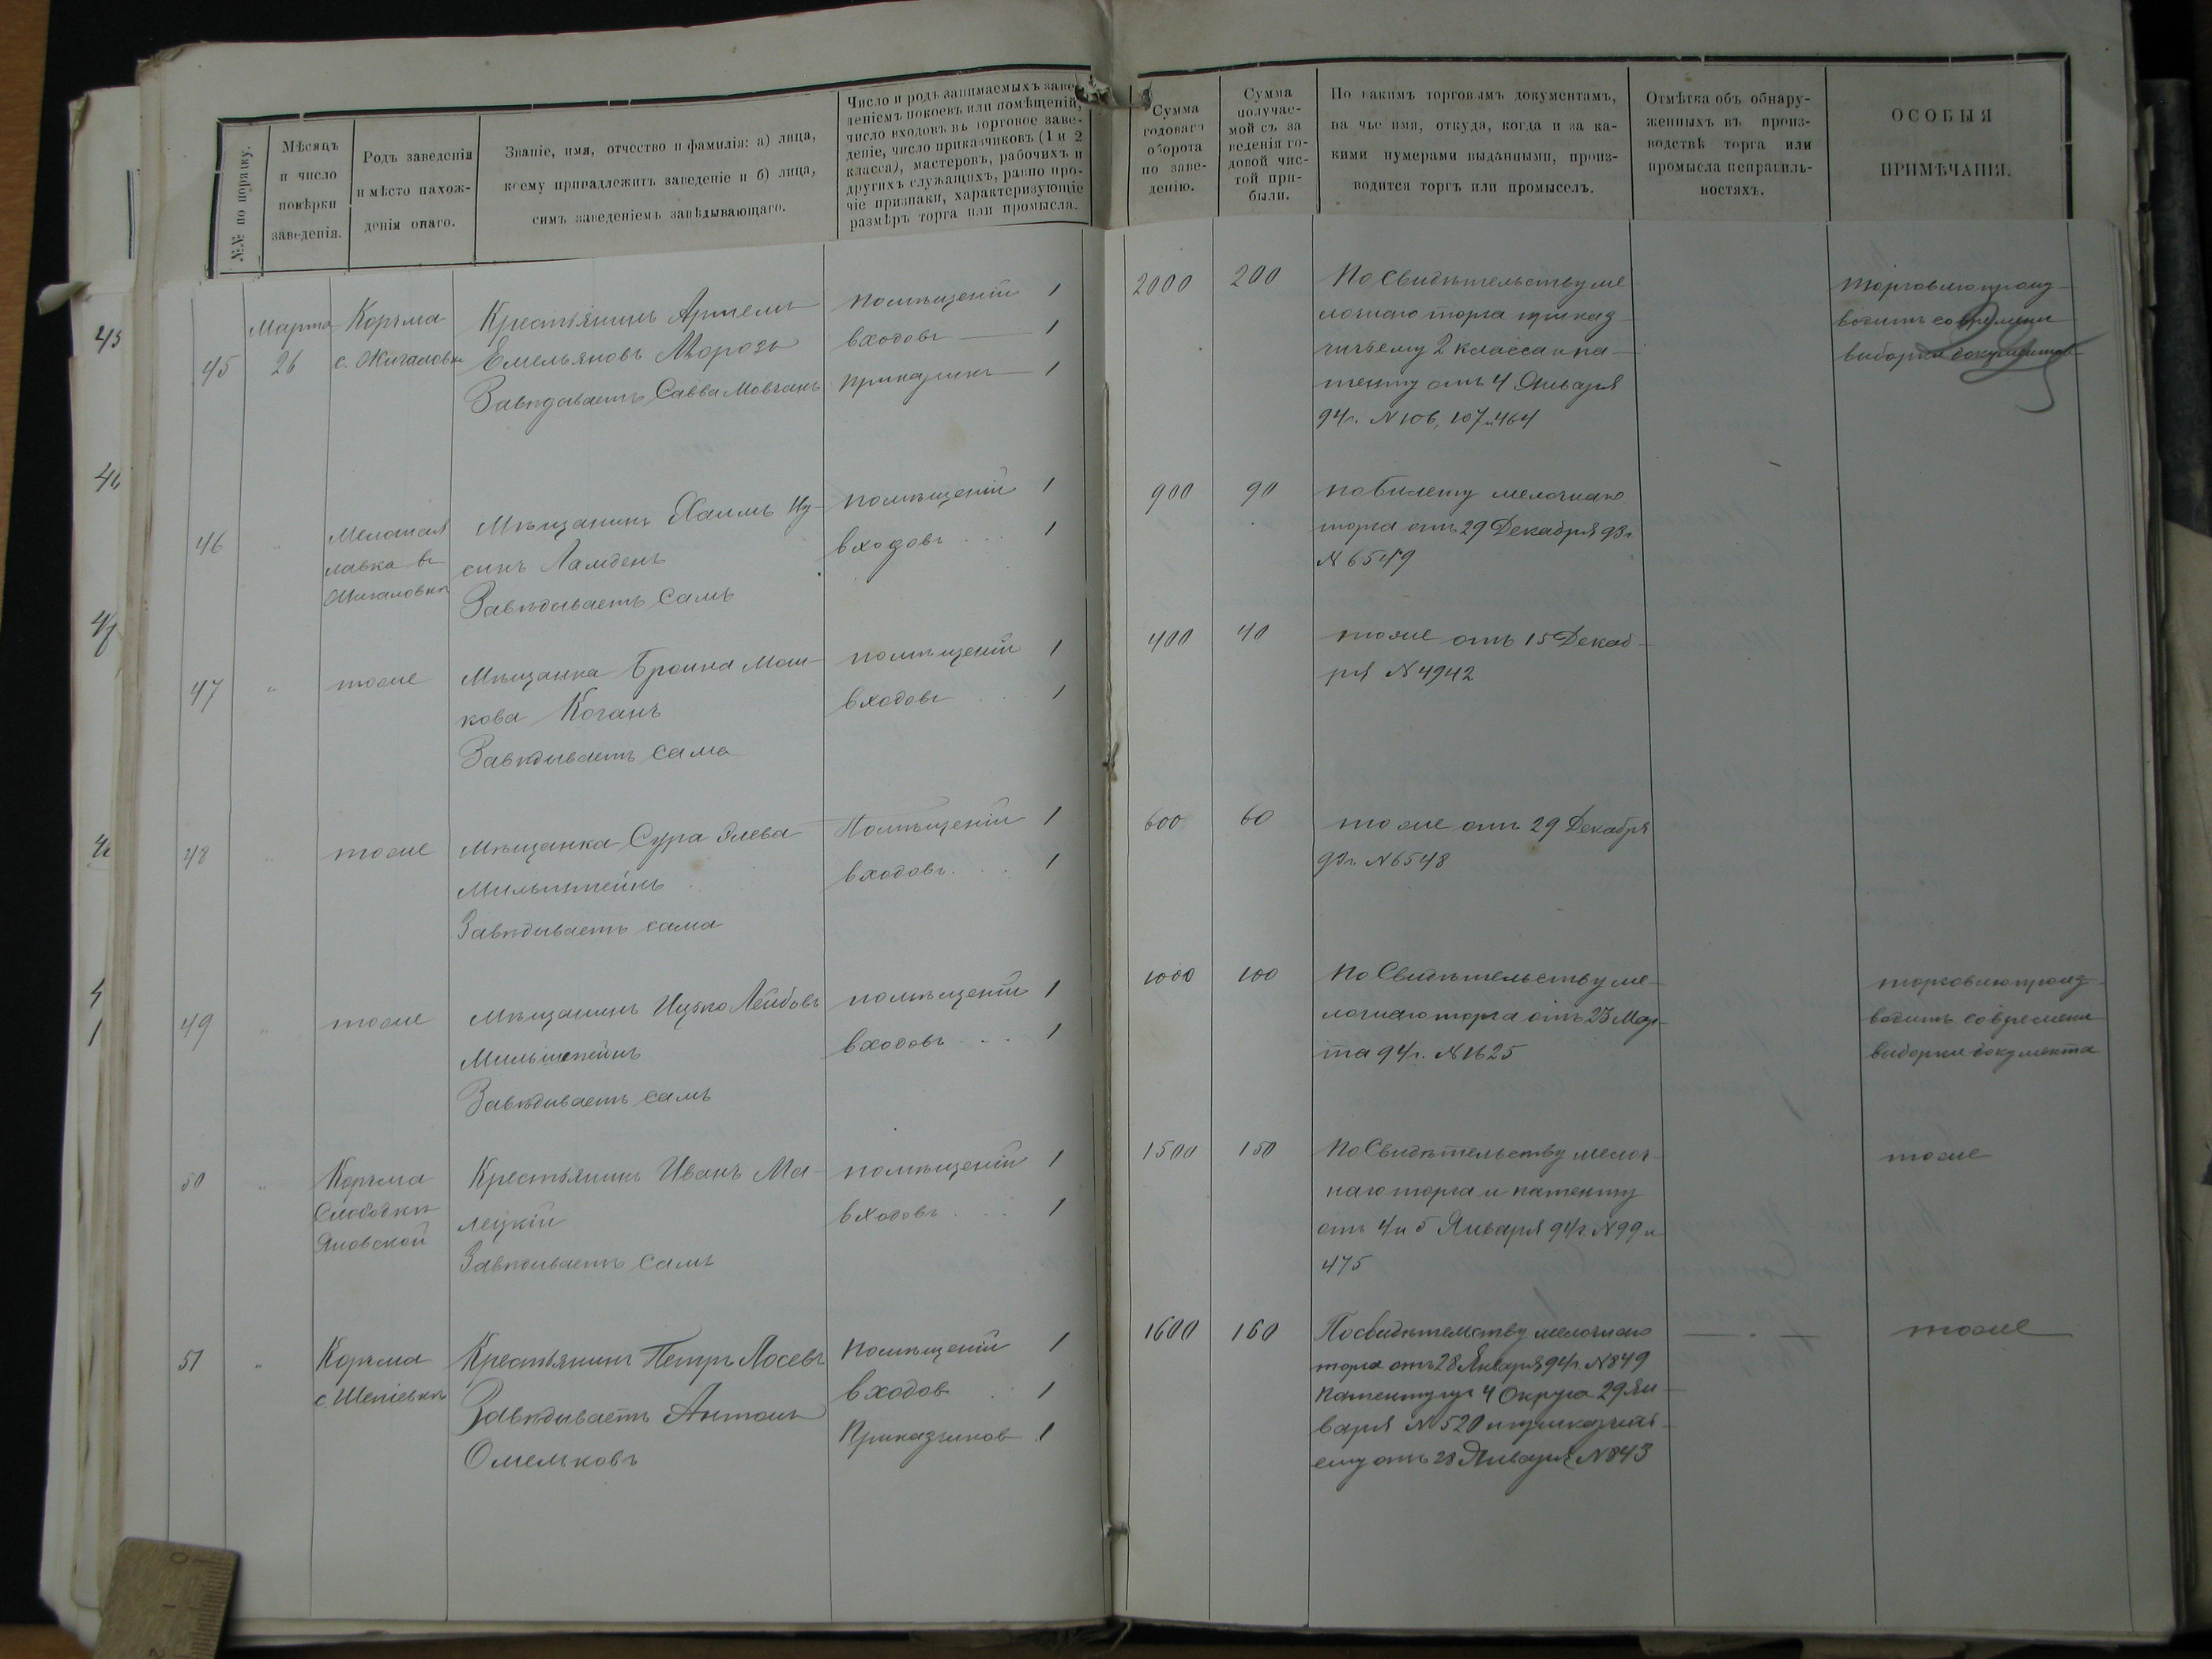 №№ по порядку.
Мѣсяцъ
и число
повѣрки
заведенія.
Родъ заведенія
и мѣсто нахож-
денія онаго.
Званіе, имя, отчество и фамилія: а) лица,
коему принадлежитъ заведеніе и б) лица,
симъ заведеніемъ завѣдывающаго.
Число и родъ занимаемыхъ заве-
деніемъ покоевъ или помѣщеній,
число входовъ въ торговое заве-
деніе, число приказчиковъ (1 и 2
класса), мастеровъ, рабочихъ и
другихъ служащихъ, равно про-
чіе признаки, характеризующіе
размѣръ торга или промысла.
Сумма
годоваго
оборота
по заве-
денію.
Сумма
получае-
мой съ за
веденія го-
довой чис-
той при-
были.
По какимъ торговымъ документамъ,
на чье имя, откуда, когда и за ка-
кими нумерами выданными, произ-
водится торгъ или промыселъ.
Отмѣтка объ обнару-
женныхъ въ произ-
водствѣ торга или
промысла неправиль-
ностяхъ.
ОСОБЫЯ
ПРИМѢЧАНІЯ.
45
Марта
26
Корчма
с. Жигаловки
Крестьянинъ Артемъ
Емельяновъ Морозъ
Завѣдываетъ Савва Мовчанъ
помѣщеній 1
входовъ 1
приказчикъ 1
2000
200
По Свидѣтельству ме
лочнаго торга приказ
чичьему 2 класса и па-
тенту отъ 4 Января
94 г. N 106, 107 и 464
торговлю произ-
водитъ со времени
выборки документов
46
"
Мелочная
лавка въ
Жигаловки
Мѣщанинъ Хаимъ Иу-
синъ Ламденъ
Завѣдываетъ Самъ
помѣщеній 1
входовъ . . . 1
900
90
по билету мелочнаго
торга отъ 29 Декабря 93 г.
N 6549
47
"
тоже
Мѣщанка Броина Мош-
кова Коганъ
Завѣдываетъ Сама
помѣщеній 1
входовъ . . 1
400
40
тоже отъ 15 Декаб-
ря N 4942
48
"
тоже
Мѣщанка Сура Элева
Мильштейнъ
Завѣдываетъ сама
Помѣщеній 1
входовъ . . . 1
600
60
тоже отъ 29 Декабря
93 г. N 6548
49
"
тоже
Мѣщанинъ Ицко Лейбовъ
Мильштейнъ
Завѣдываетъ самъ
помѣщеній 1
входовъ . . . 1
1000
100
По Свидѣтельству ме-
лочнаго торга отъ 23 Мар-
та 94 г. N 1625
торговлю произ-
водитъ со времени
выборки документа
50
"
Корчма
Слободки
Яновской
Крестьянинъ Иванъ Ма-
лецкій
Завѣдываетъ Самъ
помѣщеній 1
входовъ . . . 1
1500
150
По Свидѣтельству мелоч-
наго торга и патенту
отъ 4 и 5 Января 94 г. N 99 и
475
тоже
51
"
Корчма
с. Шепіевки
Крестьянинъ Петръ Лосевъ
Завѣдываетъ Антонъ
Омельковъ
помѣщеній 1
входов . 1
Приказчиков . 1
1600
160
По свидѣтельству мелочнаго
торга отъ 28 Января 94 г. N 849
патенту 4 Округа 29 Ян-
варя N 520 и приказчичь-
ему отъ 28 Января N 843
тоже